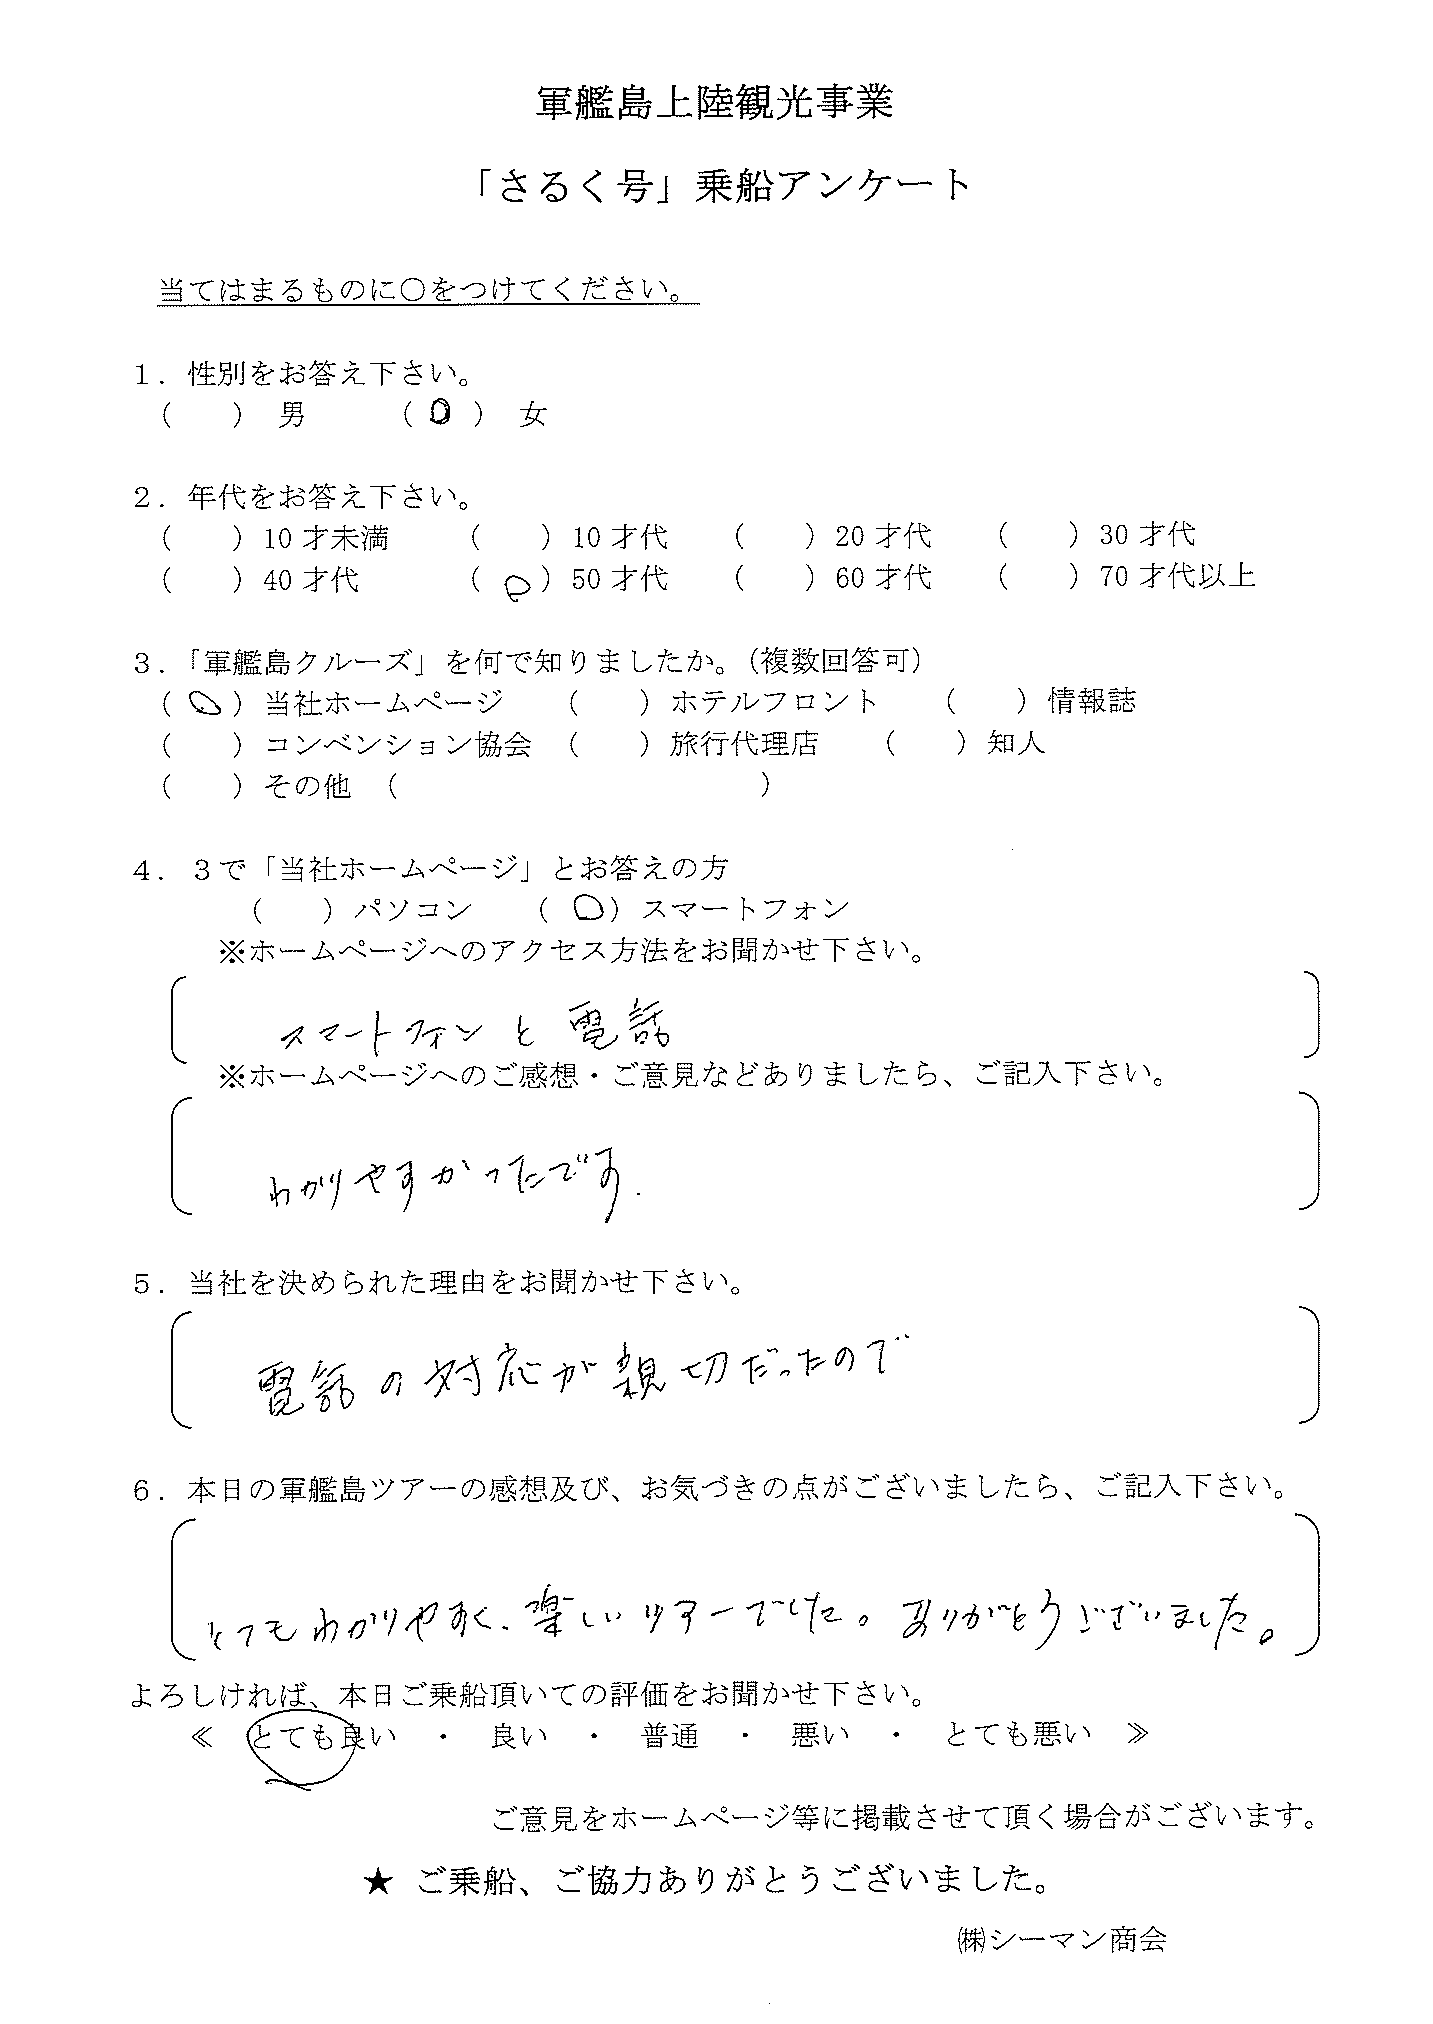 軍艦島上陸観光事業
「さるく号」乗船アンケート
当てはまるものに〇をつけてください。
１．性別をお答え下さい。
（　　）　男　　　（ 〇 ）　女
２．年代をお答え下さい。
（　　）10 才未満　　（　　）10 才代　　（　　）20 才代　　（　　）30 才代
（　　）40 才代　　（ 〇 ）50 才代　　（　　）60 才代　　（　　）70 才代以上
３．「軍艦島クルーズ」を何で知りましたか。（複数回答可）
（ 〇 ）当社ホームページ　　（　　）ホテルフロント　　（　　）情報誌
（　　）コンベンション協会　（　　）旅行代理店　　（　　）知人
（　　）その他　（　　　　　　　　　　　　）
４．３で「当社ホームページ」とお答えの方
（　　）パソコン　　（ 〇 ）スマートフォン
※ホームページへのアクセス方法をお聞かせ下さい。
スマートフォンと電話
※ホームページへのご感想・ご意見などありましたら、ご記入下さい。
わかりやすかったです.
５．当社を決められた理由をお聞かせ下さい。
電話の対応が親切だったので
６．本日の軍艦島ツアーの感想及び、お気づきの点がございましたら、ご記入下さい。
とてもわかりやすく、楽しいツアーでした。ありがとうございました。
よろしければ、本日ご乗船頂いての評価をお聞かせ下さい。
≪　とても良い　・　良い　・　普通　・　悪い　・　とても悪い　≫
ご意見をホームページ等に掲載させて頂く場合がございます。
★ ご乗船、ご協力ありがとうございました。
㈱シーマン商会